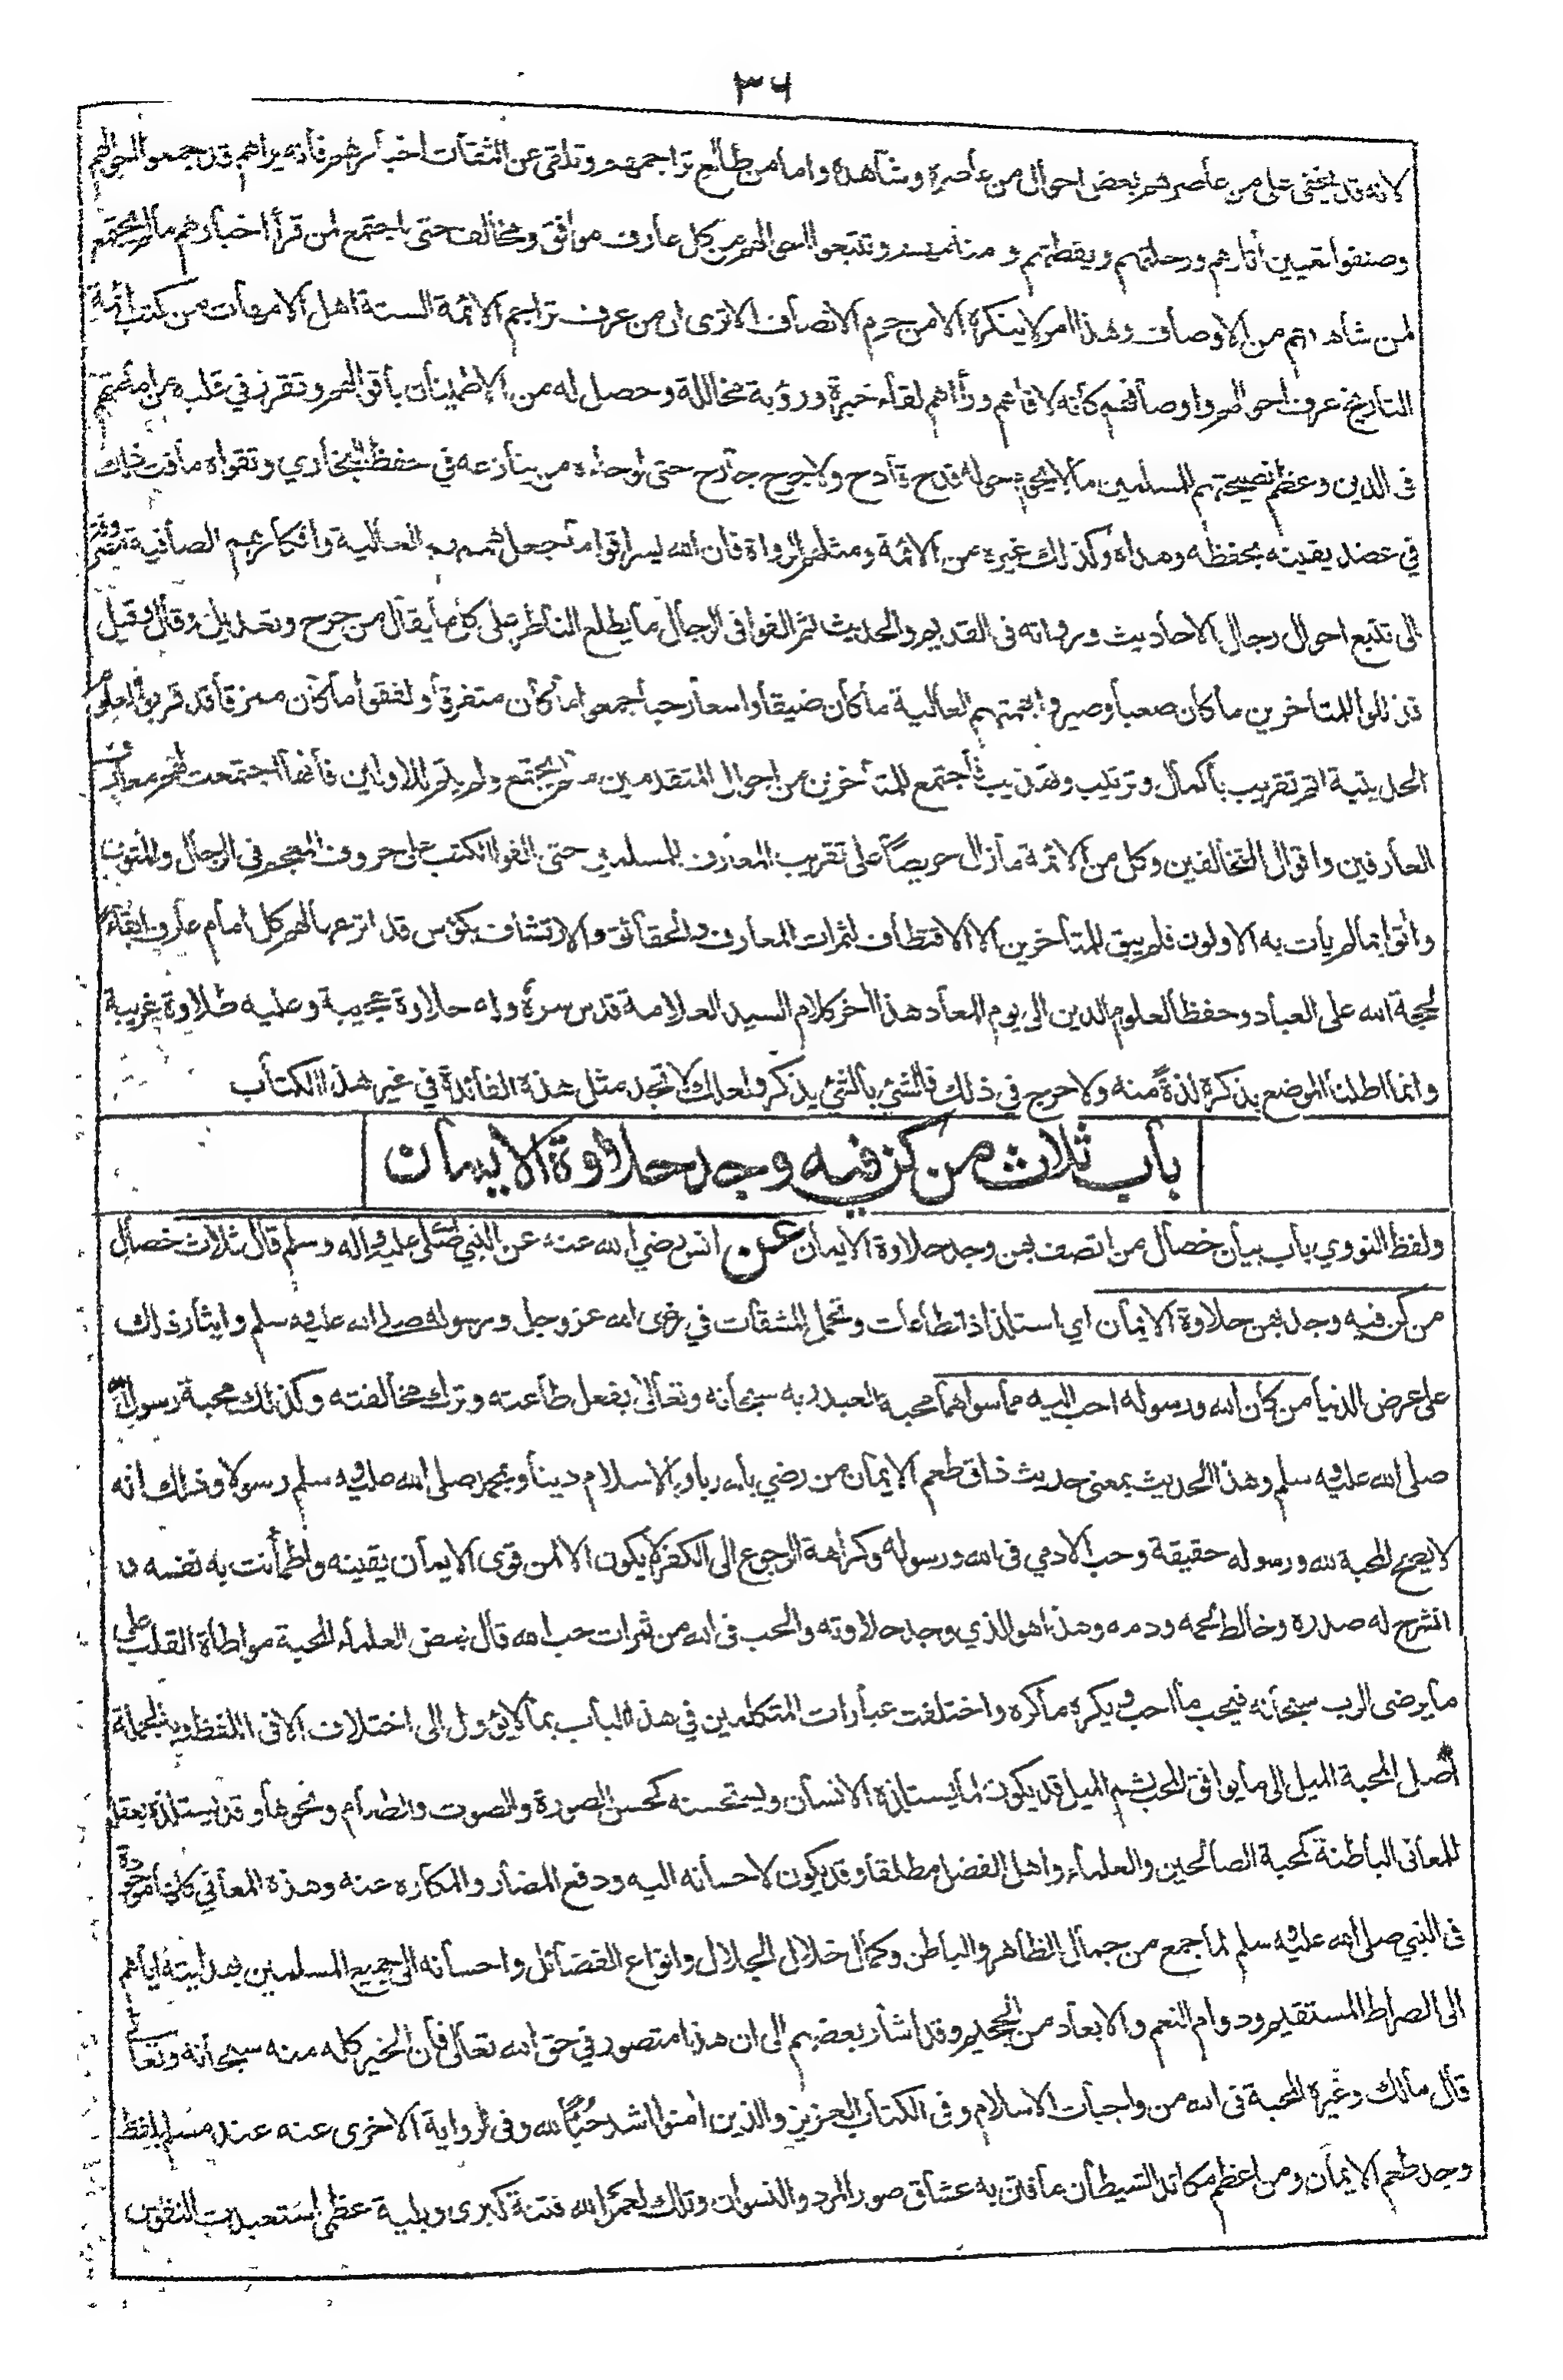 ٣٦
لانه قد يخفى على من عاصرهم بعض احوال من عاصره وشاهده واما من طالع تراجمهم وتلقى عن الثقات اخبارهم فانه يراهم قد جمعوا احوالهم
وصنفوا تعيين آثارهم ورحلتهم ويقظتهم و وتتبعوا احوالهم من كل عارف موافق ومخالف حتى اجتمع لمن قرأ اخبارهم مالم يجتمع
لمن شاهدهم من الاوصاف وهذا امر لا ينكره الا من حرم الانصاف الا ترى ان من عرف تراجم الائمة الستة اهل الامهات من كتب ائمة
التاريخ عرف احوالهم واوصافهم كانه لاقاهم ورأاهم لقاء خبرة ورؤية مخاللة وحصل له من الاطمينان باقوالهم وتقرر في قلبه من امامتهم
فى الدين وعظم نصيحتهم للمسلمين مالا يحوم حوله قدح قادح ولا جرح جارح حتى لو جاءه من ينازعه في حفظ البخاري وتقواه ما فت ذلك
في عضد يقينه بحفظه وهداه وكذلك غيره من الائمة ومثلهم الرواة فان الله يسر اقواما تجعل هممهم العالية وافكارهم الصافية
الى تتبع احوال رجال الاحاديث ورواته فى القديم والحديث ثم الفوا فى الرجال ما يطلع الناظر على كل ما يقال من جرح وتعديل وقال وقيل
قد ذللوا للمتاخرين ما كان صعبا وصيروا بهمتهم العالية ما كان ضيقا واسعا رحبا جمعوا ما كان متفرقا ولفقوا ما كان ممزقا قد قربوا العلوم
الحديثية اتم تقريب باكمال وترتيب وتهذيب فاجتمع للمتاخرين من احوال المتقدمين مالم يجتمع ولم يتم للاولين فانها اجتمعت لهم معارف
العارفين واقوال المتخالفين وكل من الائمة مازال حريصاً على تقريب المعارف للمسلمين حتى الفوا الكتب على حروف المعجم فى الرجال والمتون
واتوا بمالم يات به الاولون فلم يبق للمتاخرين الا الاقتطاف لثمرات المعارف والحقائق والارتشاف بكؤس قد اترعها لهم كل امام عارف ابقاء
لحجة الله على العباد وحفظا لعلوم الدين الى يوم المعاد هذا اخر كلام السيد العلامة قدس سره وله حلاوة عجيبة وعليه طلاوة غريبة
وانما اطلنا الموضع بذكره لذةً منه ولا حرج في ذلك فالشئ بالشئ يذكر ولعلك لا تجد مثل هذه الفائدة في غير هذا الكتاب
باب ثلاث من كن فيه وجد حلاوة الايمان
ولفظ النووي باب بيان خصال من اتصف بهن وجد حلاوة الايمان عن انس رضي الله عنه عن النبي صلى عليه واله وسلم قال ثلاث خصال
من كن فيه وجد بهن حلاوة الايمان اي استلذاذ الطاعات وتحمل المشقات في رضى الله عز وجل ورسوله صلى الله عليه وسلم وايثار ذلك
على عرض الدنيا من كان الله ورسوله احب اليه مما سواهما محبة العبد ربه سبحانه وتعالى بفعل طاعته وترك مخالفته وكذلك محبة رسول الله
صلى الله عليه وسلم وهذا الحديث بمعنى حديث ذاق طعم الايمان من رضي بالله ربا وبالاسلام دينا وبمحمد صلى الله عليه وسلم رسولا وذلك انه
لا يصح المحبة لله ورسوله حقيقة وحب الادمي فى الله ورسوله وكراهة الرجوع الى الكفر لا يكون الا لمن قوى الايمان يقينه واطمأنت به نفسه و
انشرح له صدره وخالط لحمه ودمه وهذا هو الذي وجد حلاوته والحب فى الله من ثمرات حب الله قال بعض العلماء المحبة مواطأة القلب على
ما يرضى الرب سبحانه فيحب ما احب ويكره ما كره واختلفت عبارات المتكلمين في هذا الباب بما لا يؤول الى اختلاف الا فى اللفظ وبالجملة
اصل المحبة الميل الى ما يوافق المحب ثم الميل قد يكون لما يستلذه الانسان ويستحسنه كحسن الصورة والصوت والطعام ونحوها وقد يستلذه بعقله
للمعانى الباطنة كمحبة الصالحين والعلماء واهل الفضل مطلقا وقد يكون لاحسانه اليه ودفع المضار والمكاره عنه وهذه المعاني كلها موجودة
فى النبي صلى الله عليه وسلم لما جمع من جمال الظاهر والباطن وكمال خلال الجلال وانواع الفضائل واحسانه الى جميع المسلمين بهدايته اياهم
الى الصراط المستقيم ودوام النعم والابعاد من الجحيم وقد اشار بعضهم الى ان هذا متصور في حق الله تعالى فان الخير كله منه سبحانه وتعالى
قال مالك وغيره المحبة فى الله من واجبات الاسلام وفى الكتاب العزيز والذين امنوا اشد حُبّاً لله وفى الرواية الاخرى عنه عند مسلم بلفظ
وجد طعم الايمان ومن اعظم مكائد الشيطان ما فتن به عشاق صور المرد والنسوان وتلك لعمر الله فتنة كبرى وبلية عظمى استعبدت النفوس